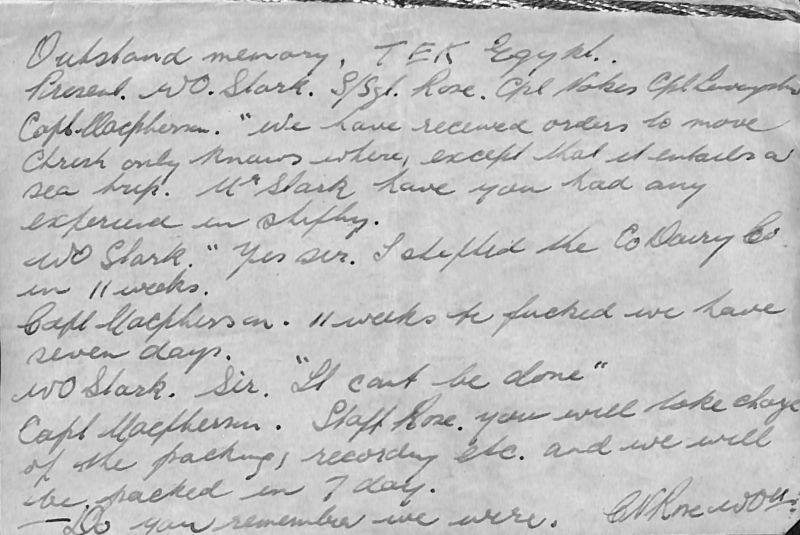 Outstand memory. T E K Egypt.
Present. WO. Stark. S/Sgt. Rose. Cpl Nokes Cpl
Capt Macpherson. "We have received orders to move
Christ only knows where, except that it entails a
sea trip. Mr Stark have you had any
experiend in shifty.
WO Stark." Yes sir. I shifted the Co Dairy Co
in 11 weeks.
Capt Macpherson. 11 weeks be fucked we have
seven days.
WO Stark. Sir. "It cant be done"
Capt Macpherson. Staff Rose. you will take charge
of the packing, recording etc. and we will
be packed in 7 day.
— Do you remember we were. Rose WO II.